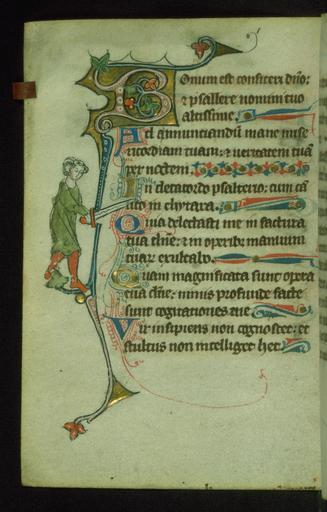 Bonum est confiteri dño:
et psallere nomini tuo
altissime.
Ad annunciandũ mane mise
ricordiam tuam: et ueritatem tuã
per noctem.
In decacordo psalterio: cum cã
tico in cythara.
Quia delectasti me in factura
tua dñe: et in operibz manuum
tuarũ exultabo.
Quam magnificata sunt opera
tua dñe: nimis profunde facte
sunt cogitationes tue.
Vir insipiens non cognoscet: et
stultus non intelliget hec.